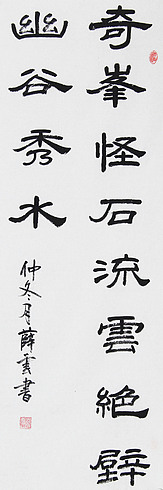 奇峯怪石流雲絶壁
幽谷秀水
仲冬月薛雲書